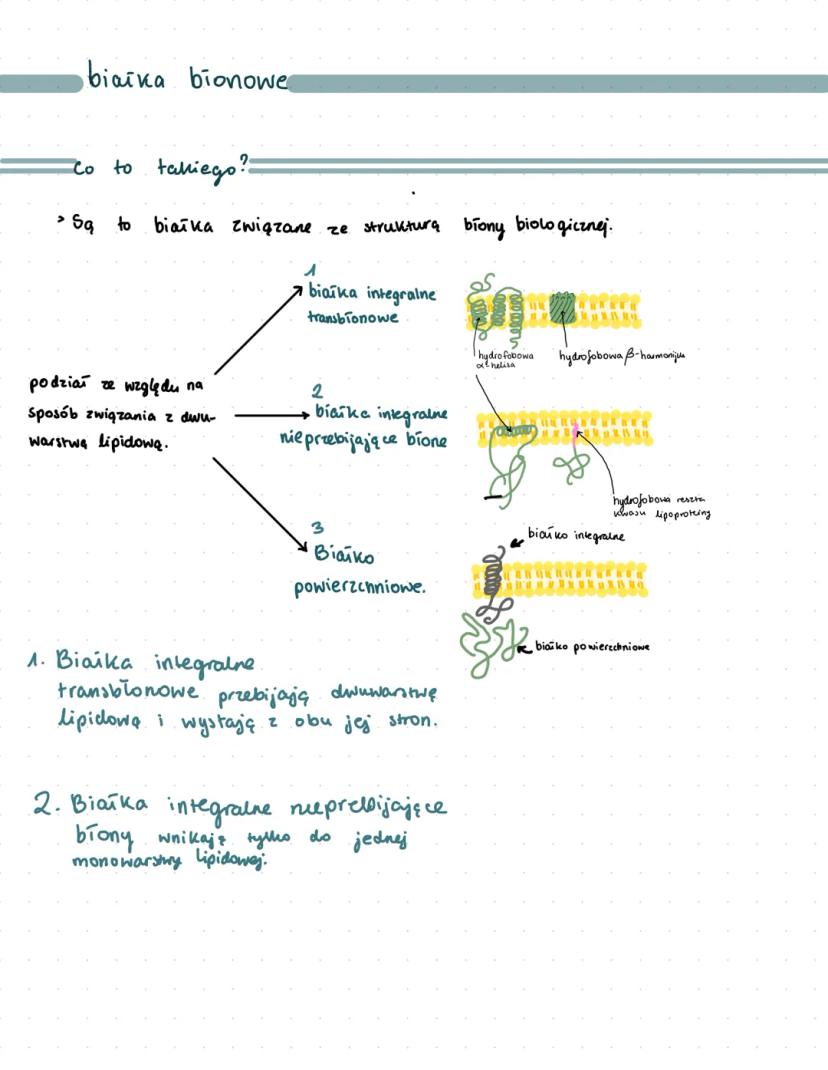 białka błonowe
Co to takiego?
> Są to białka związane ze strukturą błony biologicznej.
1
białka integralne
transbłonowe
hydrofobowa
α helisa
hydrofobowa β-harmonijka
podział ze względu na
sposób związania z dwu-
warstwą lipidową.
2
białka integralne
nieprzebijające błonę
hydrofobowa reszta
kwasu lipoproteiny
3
Białko
powierzchniowe.
białko integralne
białko powierzchniowe
1. Białka integralne
transbłonowe przebijają dwuwarstwę
lipidową i wystają z obu jej stron.
2. Białka integralne nieprzebijające
błony wnikają tylko do jednej
monowarstwy lipidowej.